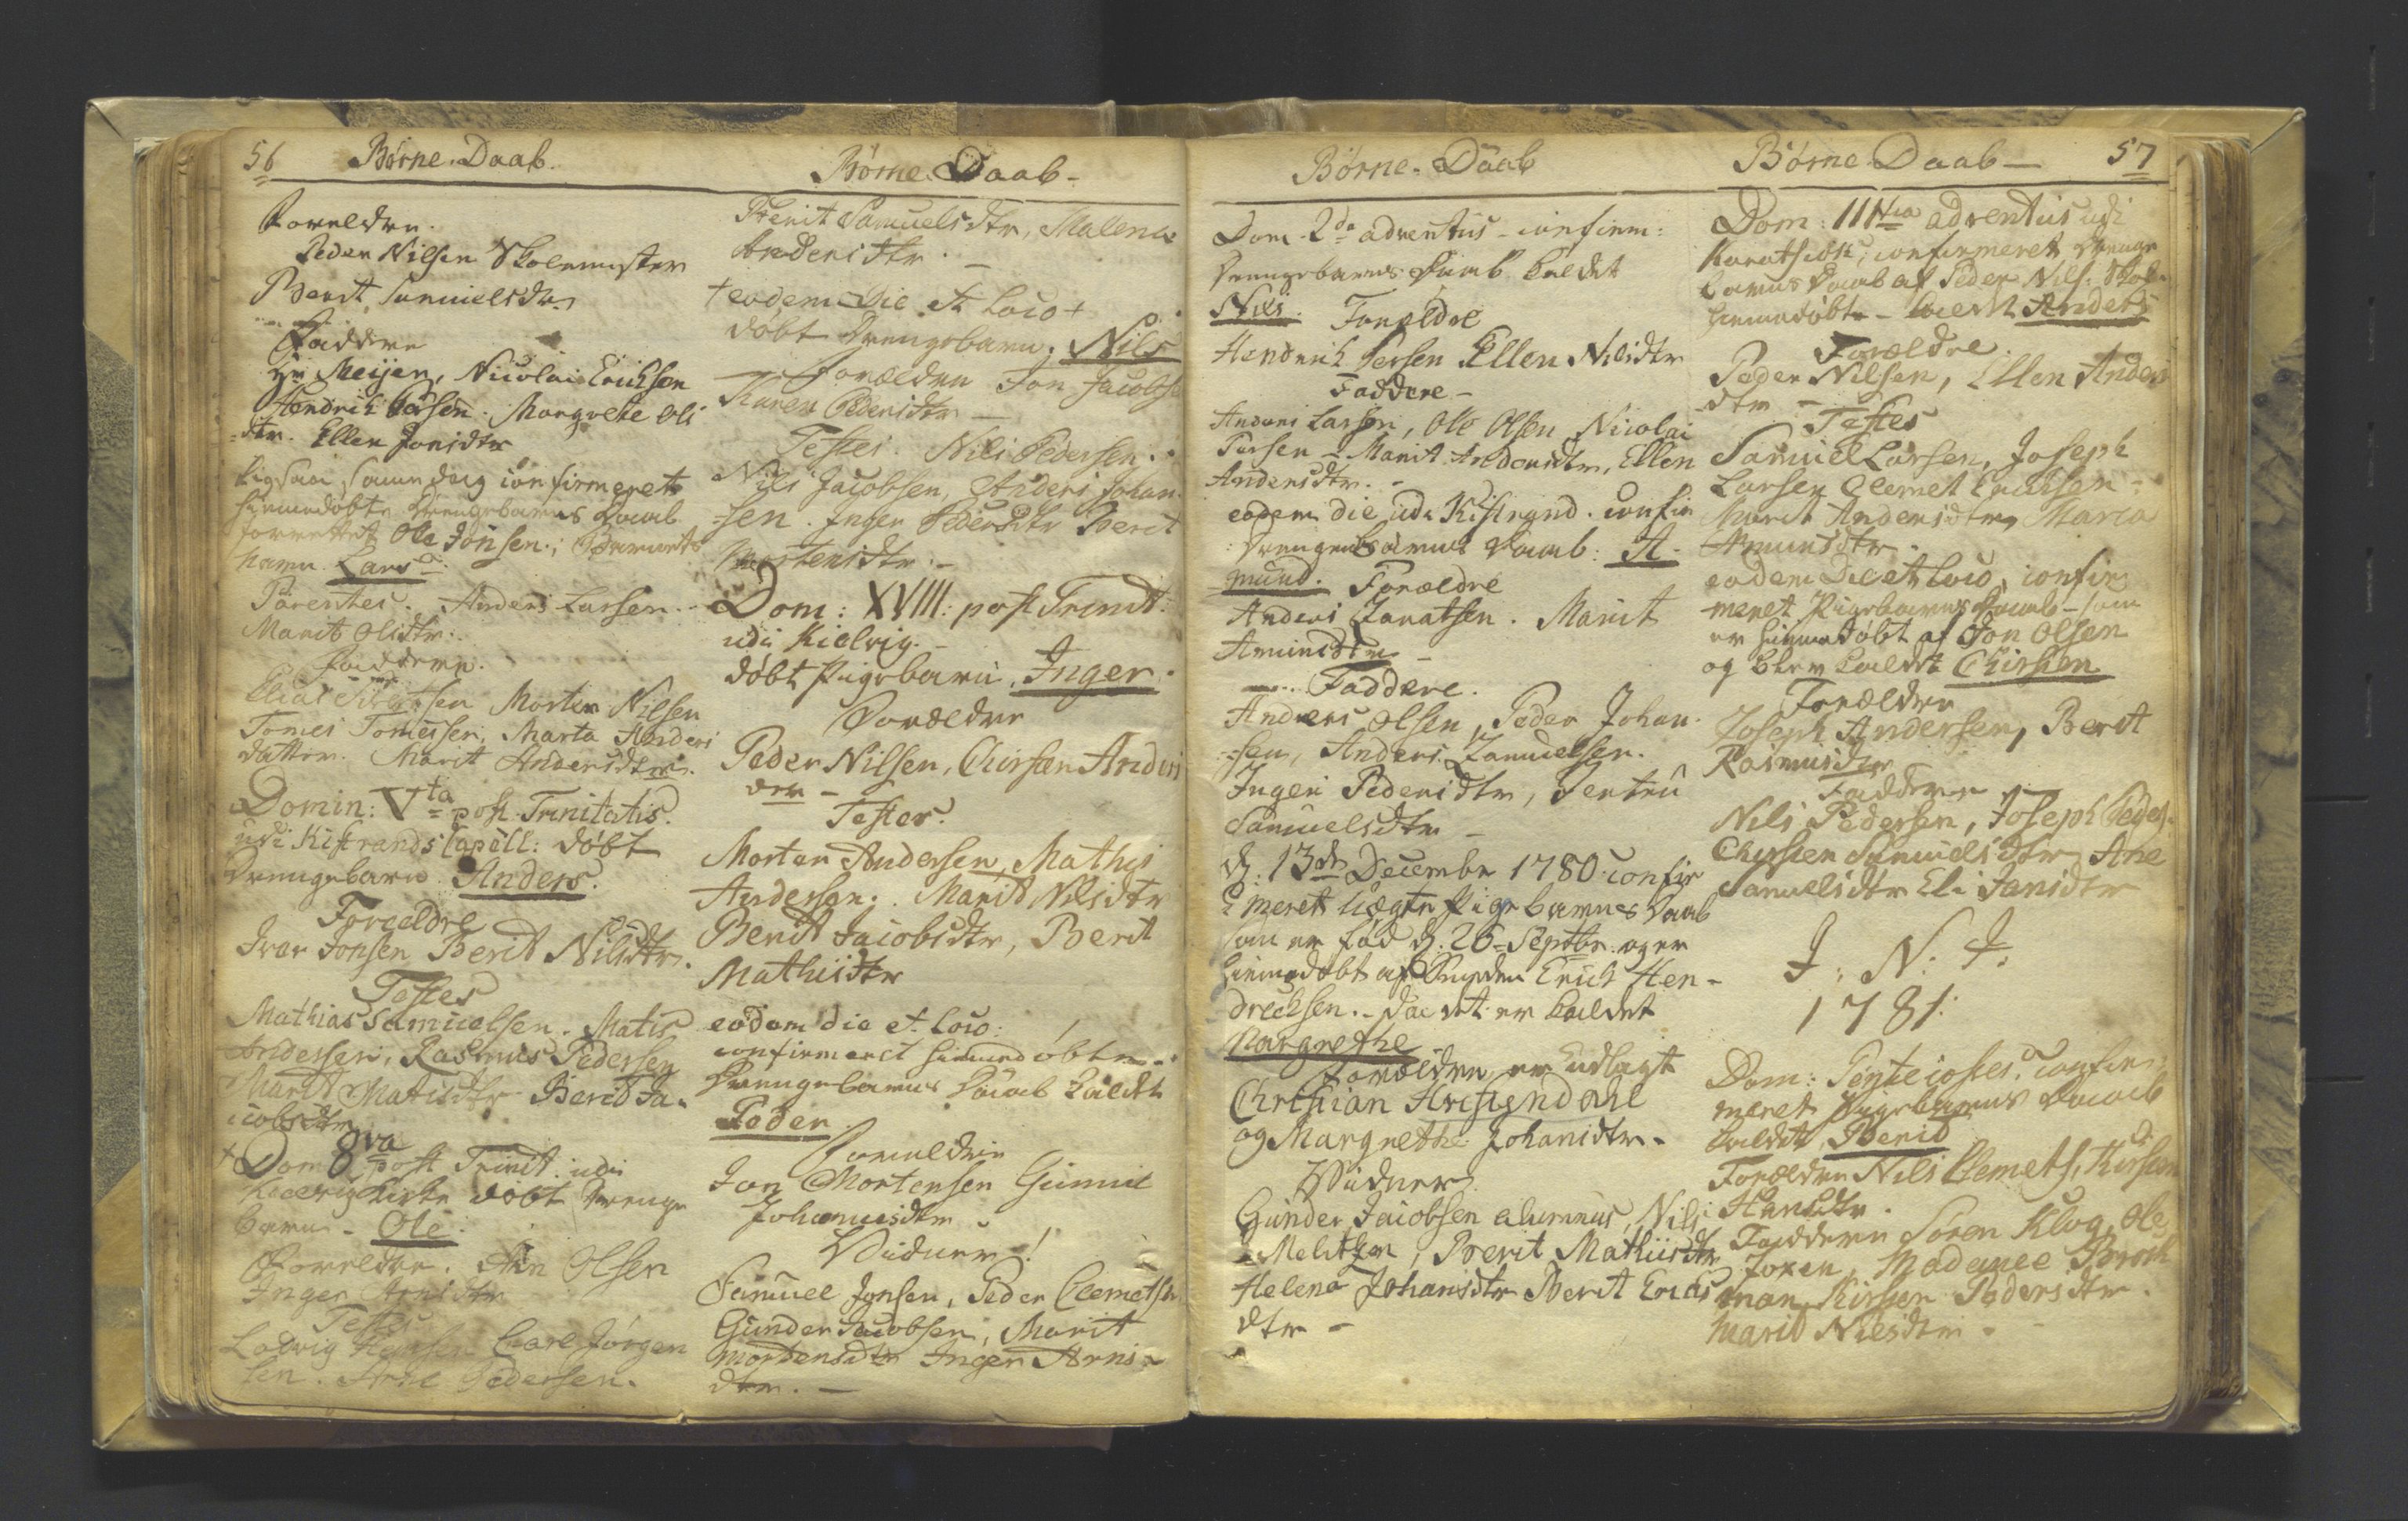 56 Børne-Daab.
Forældre.
Peder Nilsen Skolemester
Berit Samuelsdtr
Faddere
Hr Meijer, Nicolai Erichsen
Hendrich Persen. Margrete Ols
dtr. Ellen Jonsdtr
ligsaa samme dag confirmeret
hiemmedøbte Drengebarns Daab
forrettet Ole Jonsen; Barnets
Navn. Lars
Parentes. Anders Larsen.
Marit Olsdtr.
Faddere.
Elias Morten Nilsen
Tomes Tomessen, Marta Anders
datter. Marit Andersdtr.
Domin: Vta post Trinitatis.
udi Kistrands Capell: døbt
Drengebarn Anders.
Forældre
Ivar Jonsen Berit Nilsdtr.
Testes
Mathias Samuelsen. Matis
Andersen, Rasmus Pedersen
Marit Matisdtr Berit Ja-
cobsdtr
+ Dom 8va post Trinit. udi
Kielvig Kirke døbt Drenge
barn - Ole.
Forældre. Olsen
Inger
Testes
Ludvig Hansen Carl Jørgen
sen. Arne Pedersen.
Børne-Daab-
Berit Samuelsdtr, Malena
Andersdtr. -
+ eodem Die et Loco +
døbt Drengebarn. Nils
Forældre Jon Jacobsen
Karen Pedersdtr -
Testes. Nils Pedersen.
Nils Jacobsen, Anders Johan-
sen. Inger Pedersdtr Berit
Mortensdtr. -
Dom: XVIII: post Trinit.
udi Kielvig. -
døbt Pigebarn, Inger.
Forældre
Peder Nilsen, Chirsten Anders
dtr -
Testes.
Morten Andersen, Mathis
Andersen. Marit Nilsdtr
Berit Jacobsdtr, Berit
Mathisdtr
eodem die et loco.
confirmeret hiemmedøbte
Drengebarns Daab kaldet
Peder.
Forældre
Jon Mortensen Gunnil
Johannesdtr.
Vidner!
Samuel Jonsen, Peder Clemetsen
Gunder Jacobsen, Marit
Mortensdtr Inger Arns-
dtr. -
Børne-Daab
Dom. 2da adventus - confirm:
Drengebarns Daab kaldet
Nils. Forældre
Hendrich Persen Ellen Nilsdtr
Faddere -
Anders Larsen, Ole Olsen Nicolai
Persen - Marit Andersdtr, Ellen
Andersdtr. -
eodem die udi Kistrand. confir
Drengebarns Daab: A-
mund. Forældre
Anders Zaratsen. Marit
Amundsdtr -
Faddere.
Anders Olsen, Peder Johan-
sen, Anders Zamuelsen.
Inger Pedersdtr,
Samuelsdtr -
d: 13de December 1780. confir
meret uægte Pigebarnes Daab
som er fød d. 26 Septbr. og er
hiemmedøbt af Erich Hen-
drechsen. - da det er kaldet
Margrethe
Forældre er udlagt
Christian
og Margrethe Johansdtr.
Vidner
Gunder Jacobsen alumnus, Nils
Meltzer, Berit Mathisdtr
Helena Johansdtr Berit Erichs
dtr -
Børne-Daab - 57
Dom: IIItia adventus udi
confirmeret Drenge
barns Daab af Peder Nils: Skol
hiemmedøbte - kaldt Anders
Forældre
Peder Nilsen, Ellen Anders
dtr -
Testes
Samuel Larsen, Joseph
Larsen Clemet
Marit Andersdtr, Maria
Amundsdtr.
eodem Die et loco, confir-
meret Pigebarns Daab - som
er hiemmedøbt af Jon Olsen
og blev kaldet Chirsten
Forældre
Joseph Andersen, Berit
Rasmusdtr
Faddere
Nils Pedersen, Joseph Peders.
Chirsten Samuelsdtr, Ane
Samuelsdtr Eli Jansdtr
J: N: J:
1781.
Dom: Pentecostes. confir-
meret Pigebarns Daab
kaldet Berit
Forældre Nils Clemets, Kirsten
Hansdtr.
Faddere Søren Klog, Ole
Joxen, Madame Broch
man, Kirsten Pedersdtr.
Marit Nilsdtr.